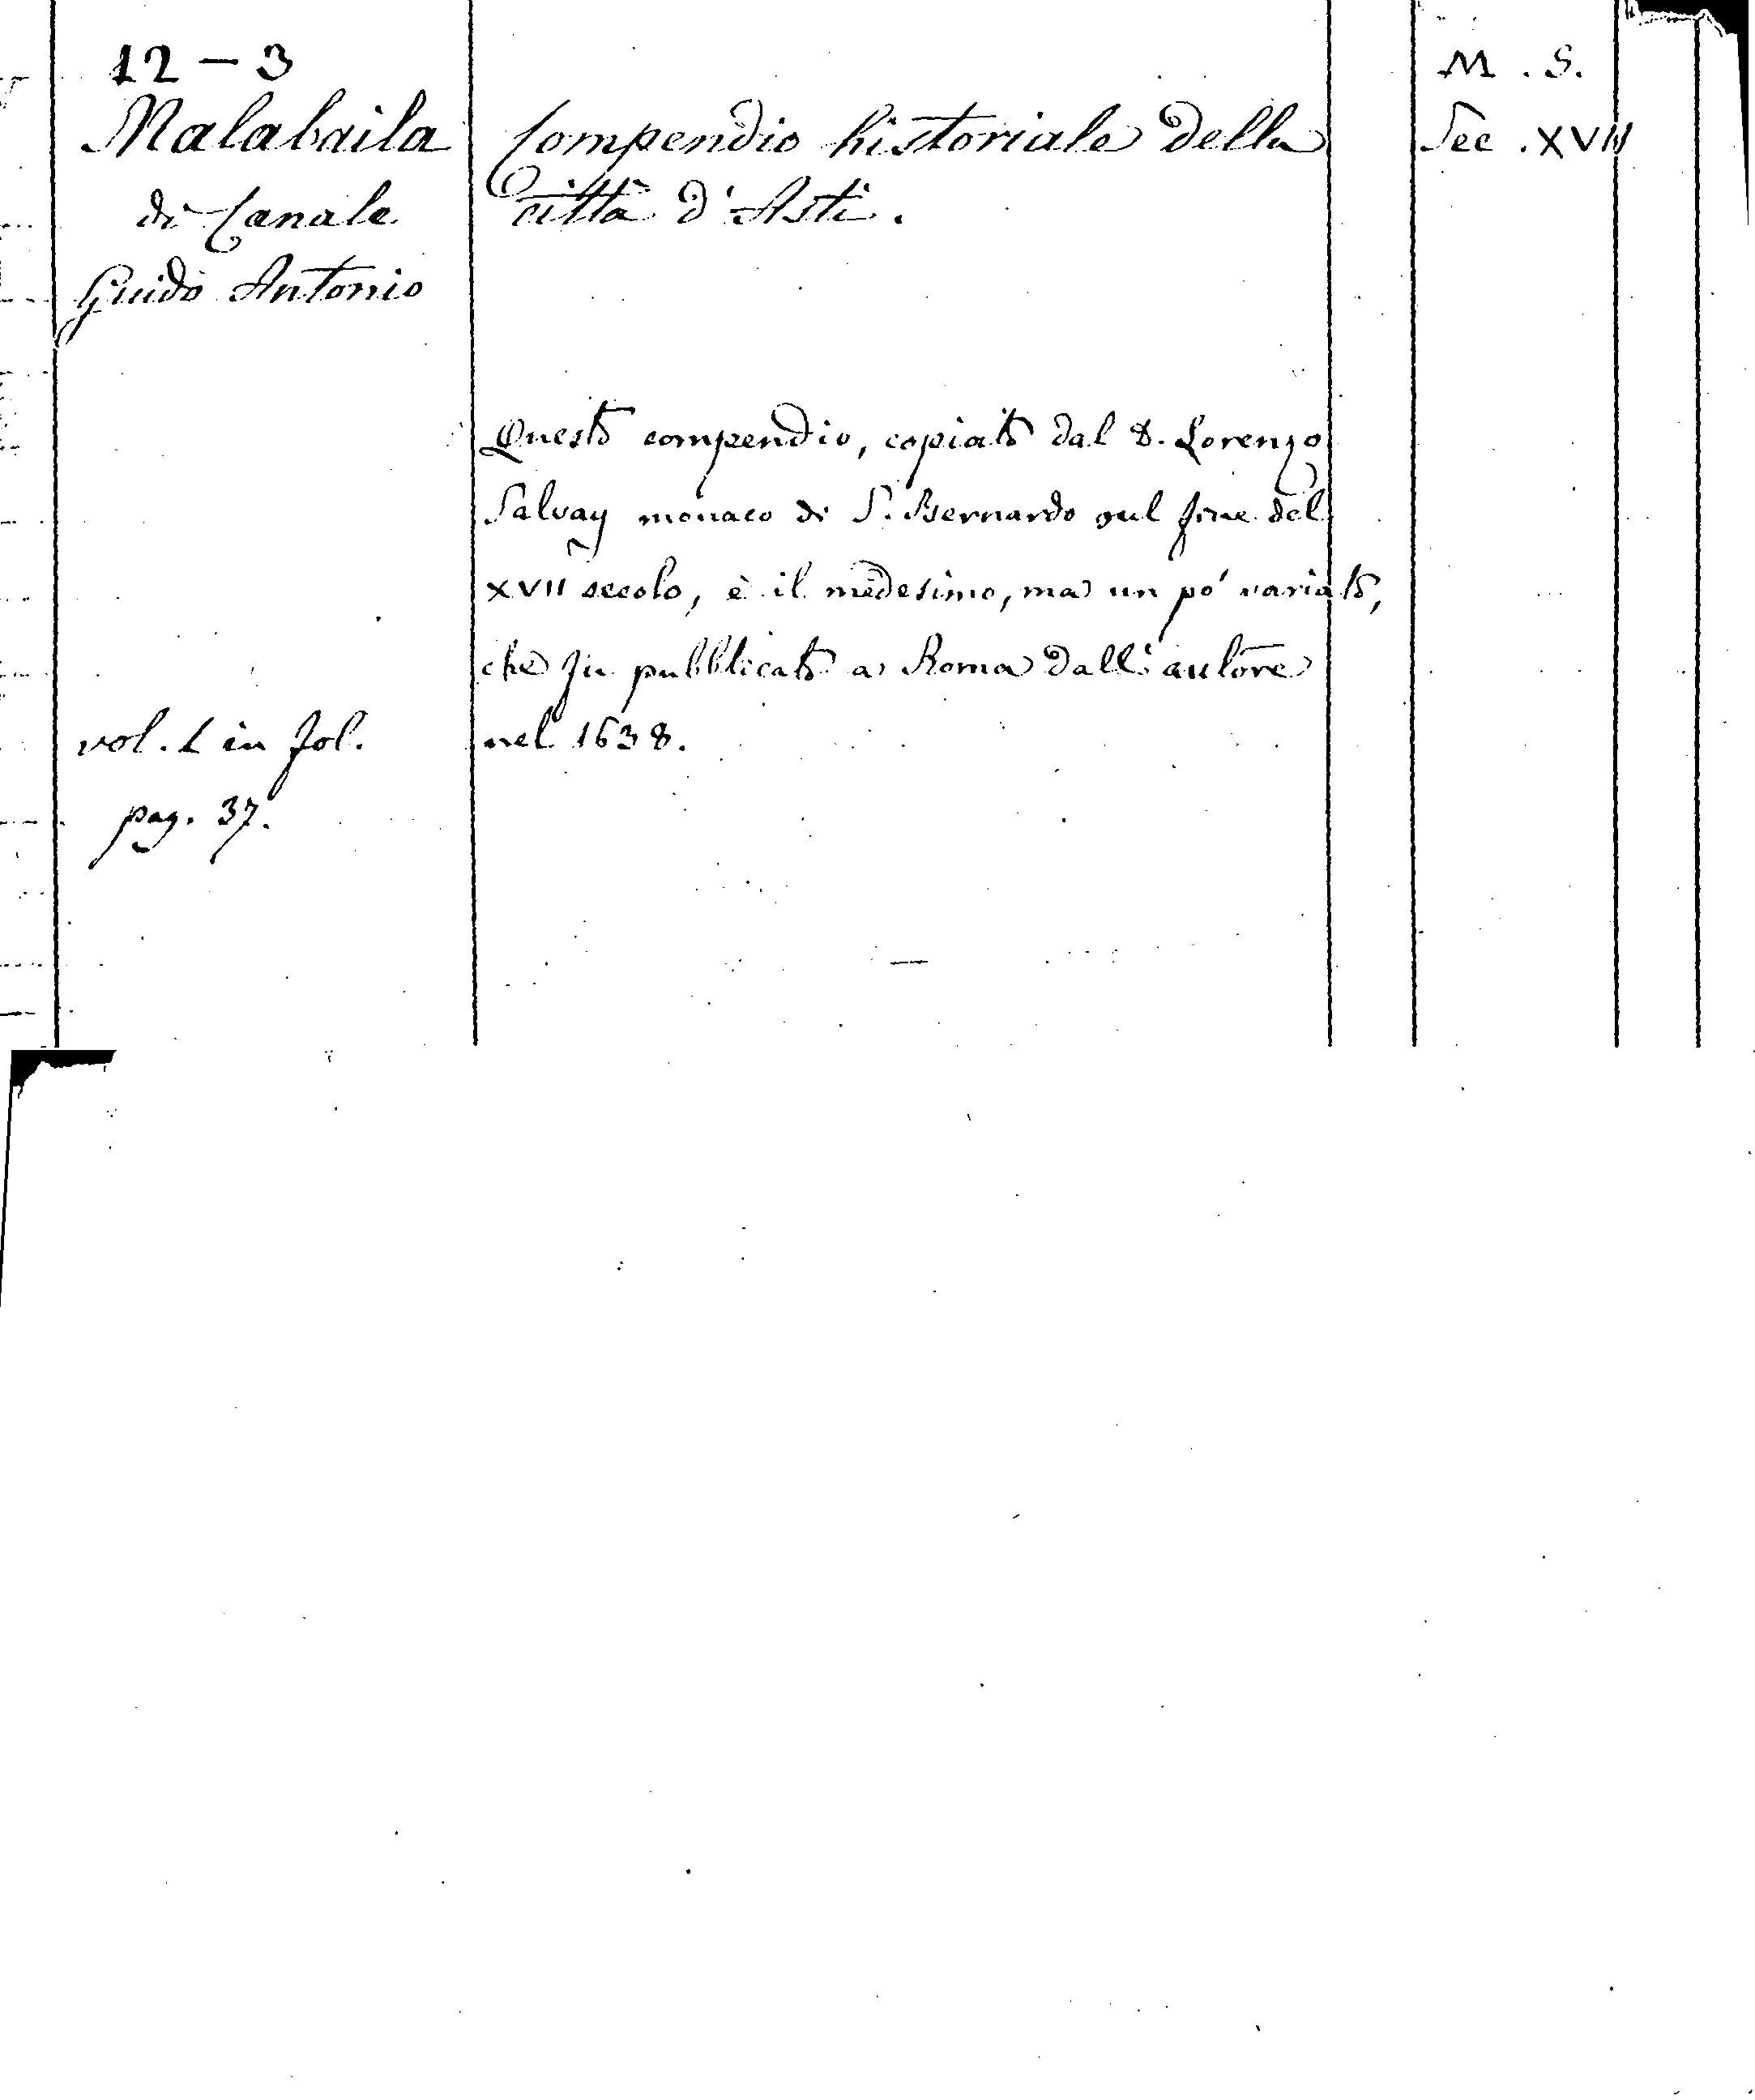 12 – 3
Malabaila
di Canale
Guido Antonio
vol. 1 in fol.
pag. 37.
Compendio historiale della
città d'Asti.
Questo compendio, copiato dal D. Lorenzo
Salvay monaco di S. Bernardo sul fine del
XVII secolo, è il medesimo, ma un pó variato,
che fu pubblicato a Roma dall'autore
nel 1638.
M. S.
Sec. XVII